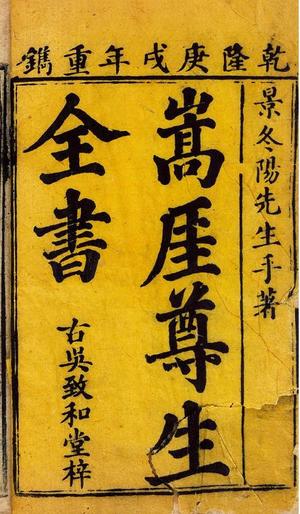 乾隆庚戌年重鐫
景冬陽先生手著
嵩厓尊生
全書
古吳致和堂梓